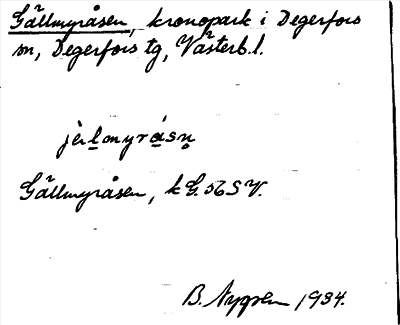 Gällmyråsen, kronopark i Degerfors
sn, Degerfors tg, Västerb.l.
jèlmyråsn̥
Gällmyråsen, k G. 56 SV.
B. Nygren 1934.